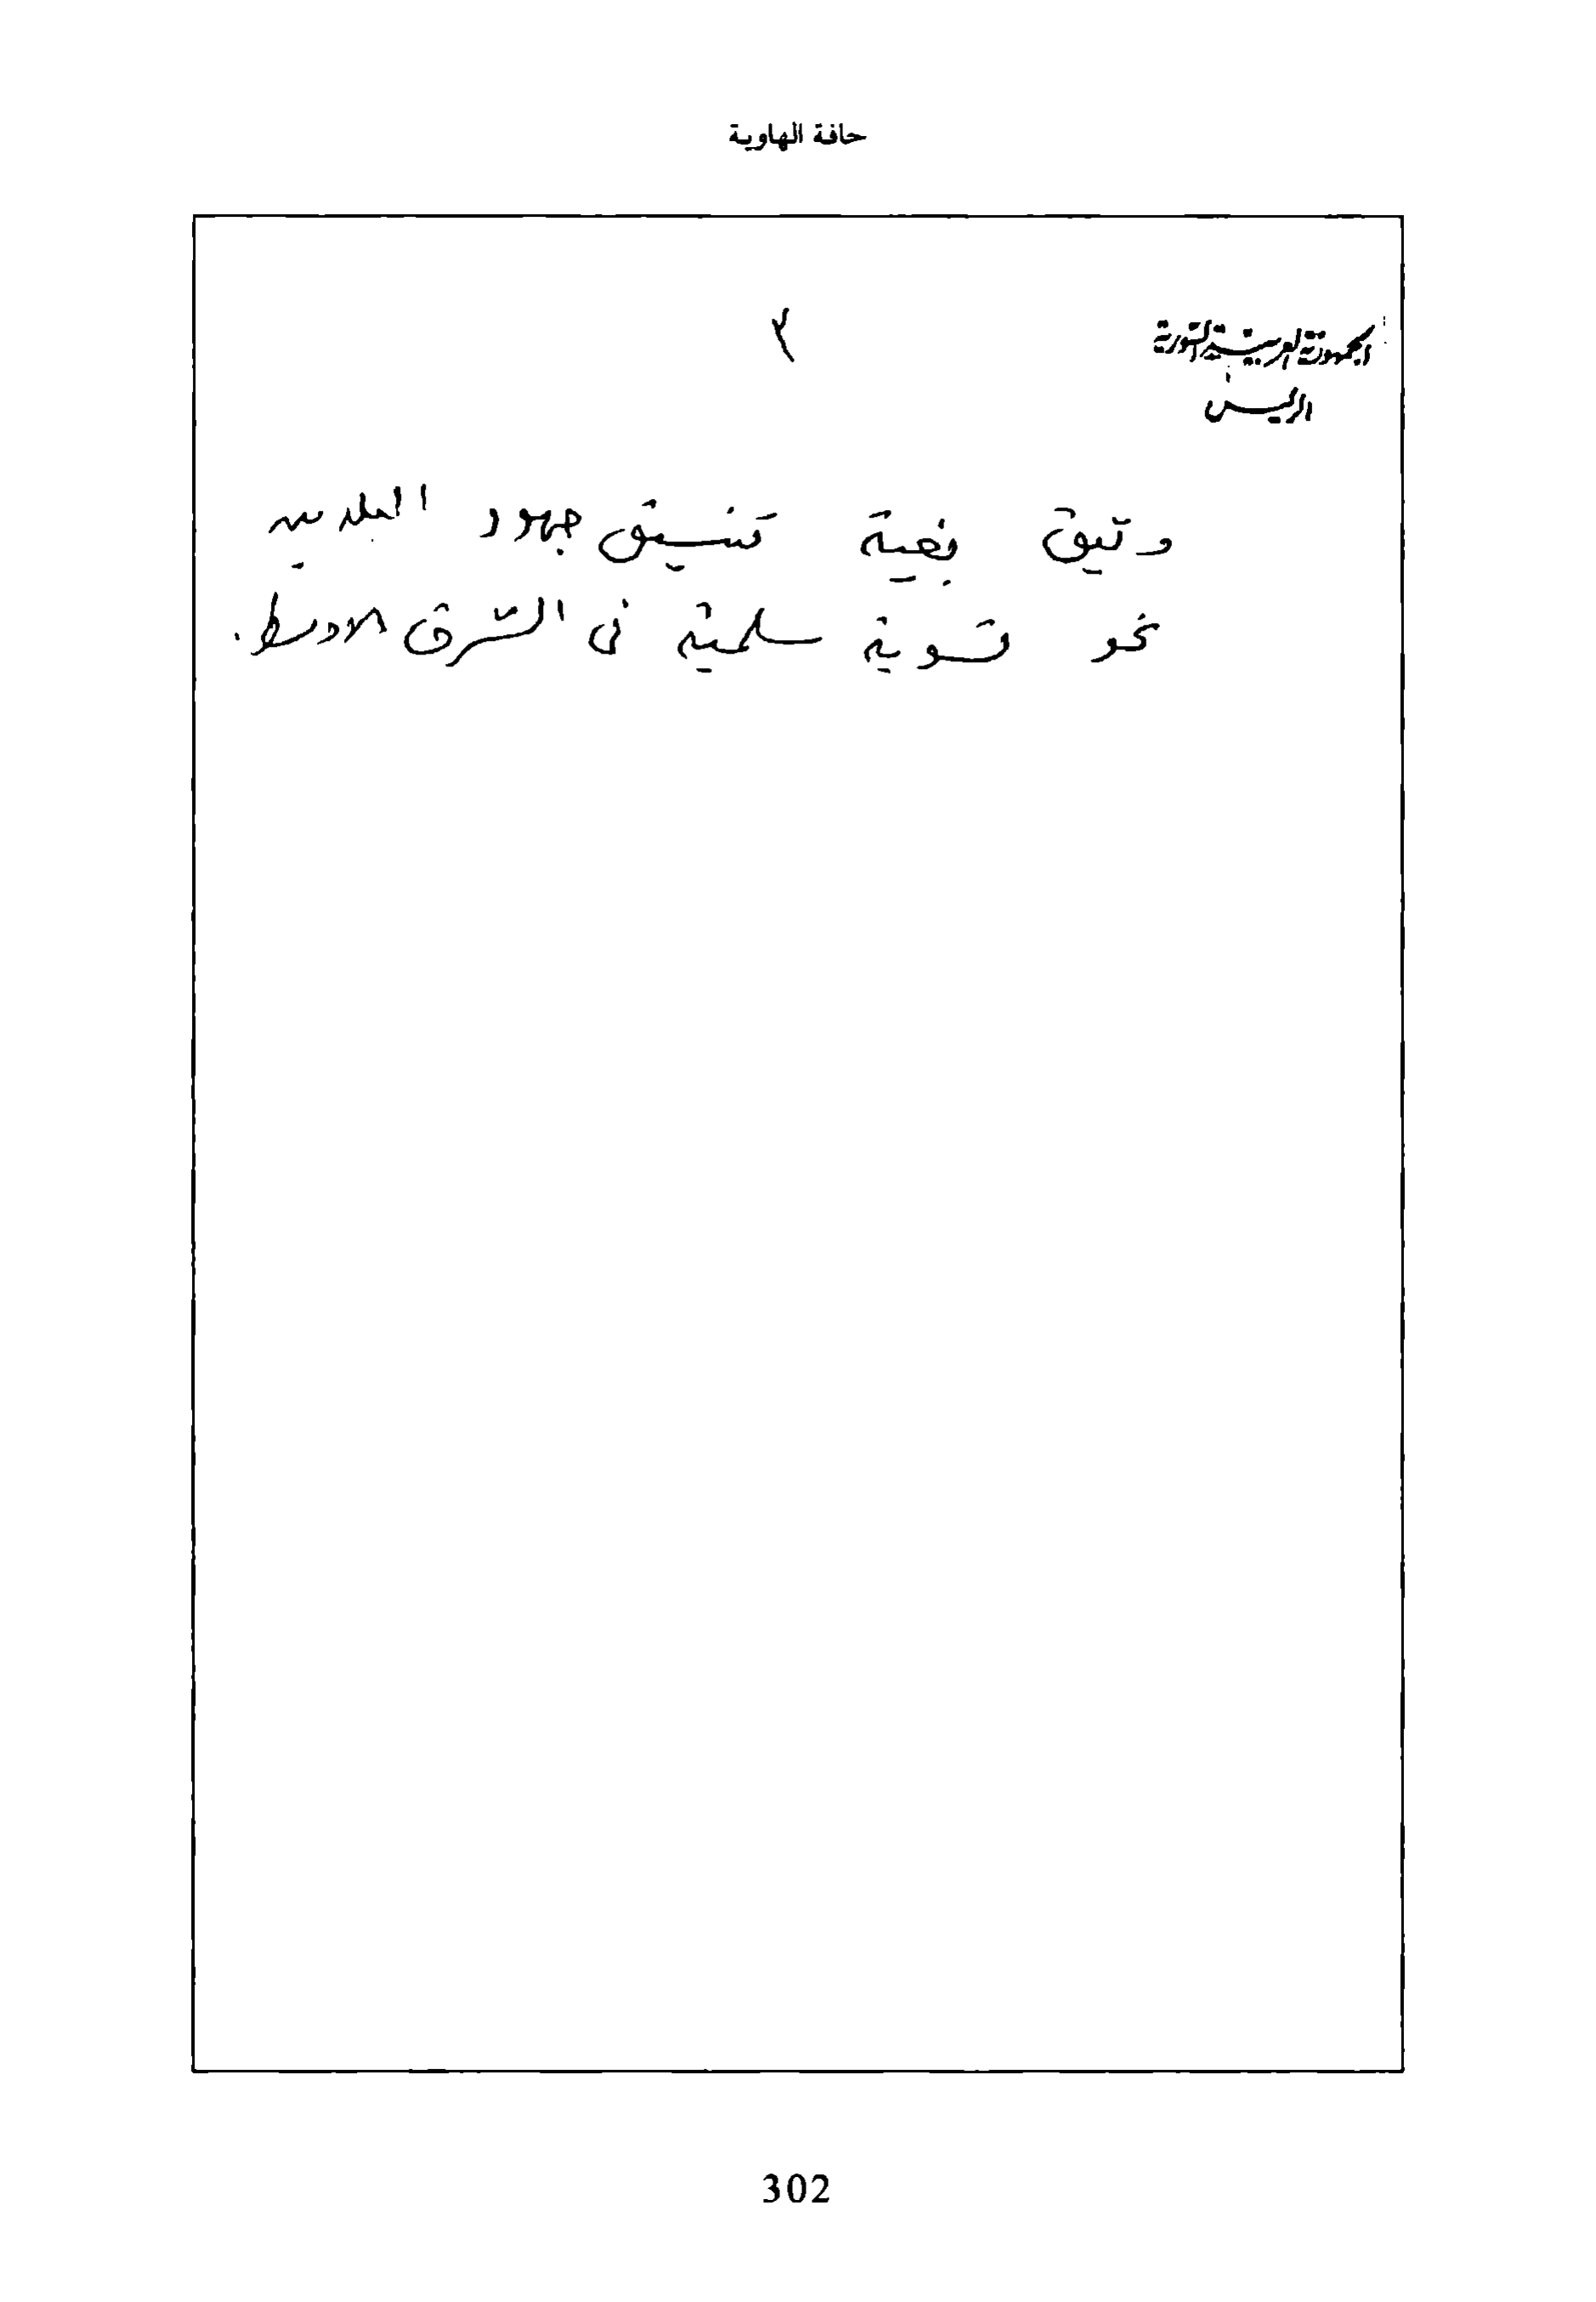 حافة الهاوية
٢
الجمهورية العربية السورية
الرئيس
وثيق بغية تنسيق جهود البلدين
نحو تسوية سلمية في الشرق الاوسط.
302